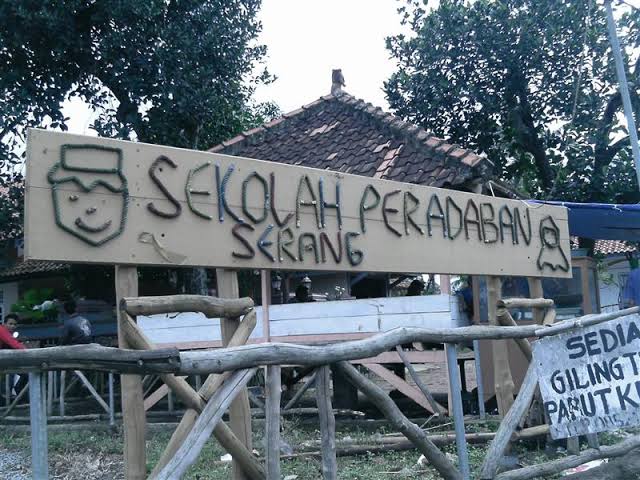 SEKOLAH PERADABAN
SERANG
SEDIA
GILING T
PARUT K